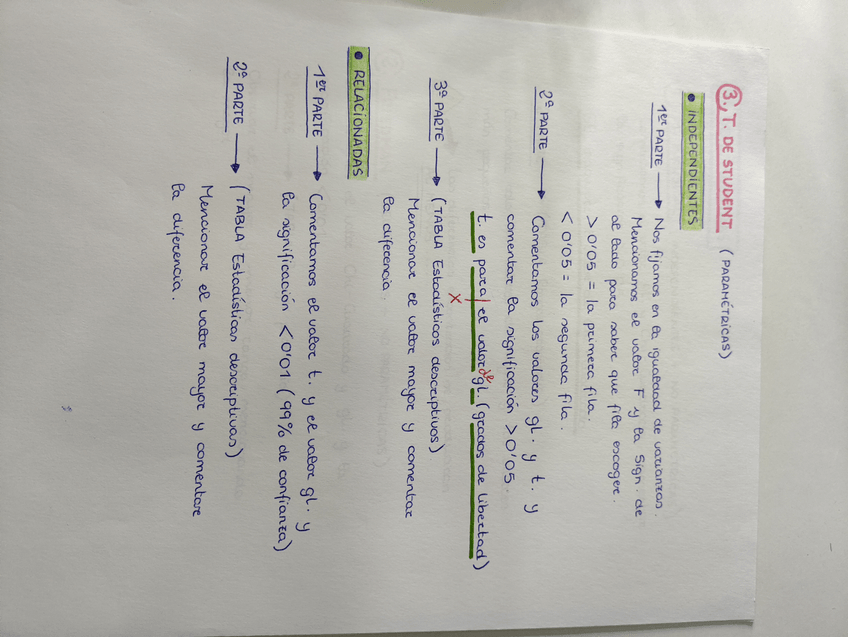 3., T. DE STUDENT (PARAMÉTRICAS)
• INDEPENDIENTES
1er PARTE → Nos fijamos en la igualdad de varianzas.
Mencionamos el valor F y la Sign. de
al lado para saber que fila escoger.
> 0'05 = la primera fila.
< 0'05 = la segunda fila.
2ª PARTE → Comentamos los valores gl. y t. y
comentar la significación > 0'05.
t. es para el valor de gl. (grados de libertad)
x
3ª PARTE → (TABLA Estadísticos descriptivos)
Mencionar el valor mayor y comentar
la diferencia.
• RELACIONADAS
1er PARTE → Comentamos el valor t. y el valor gl. y
la significación < 0'01 (99% de confianza)
2ª PARTE → (TABLA Estadísticas descriptivas)
Mencionar el valor mayor y comentar
la diferencia.